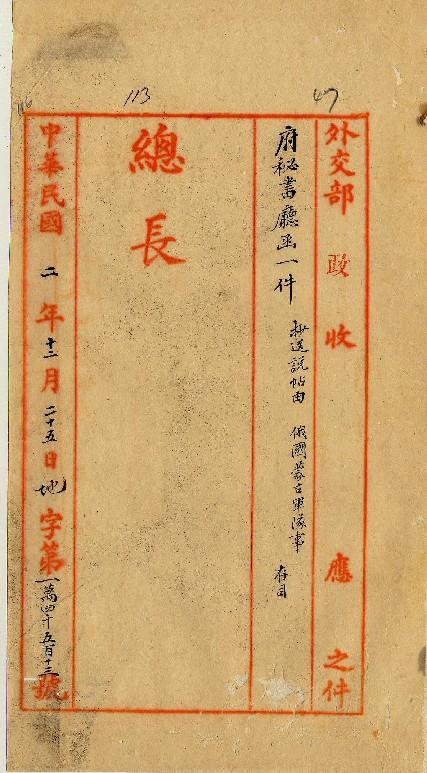 47
113
116
外交部 政 收 應 之件
府秘書廳函一件 抄送說帖由 俄國蒙古軍隊事 存目
總長
中華民國 二 年 十二 月 二十五 日 地 字第 一萬四千五百十三 號